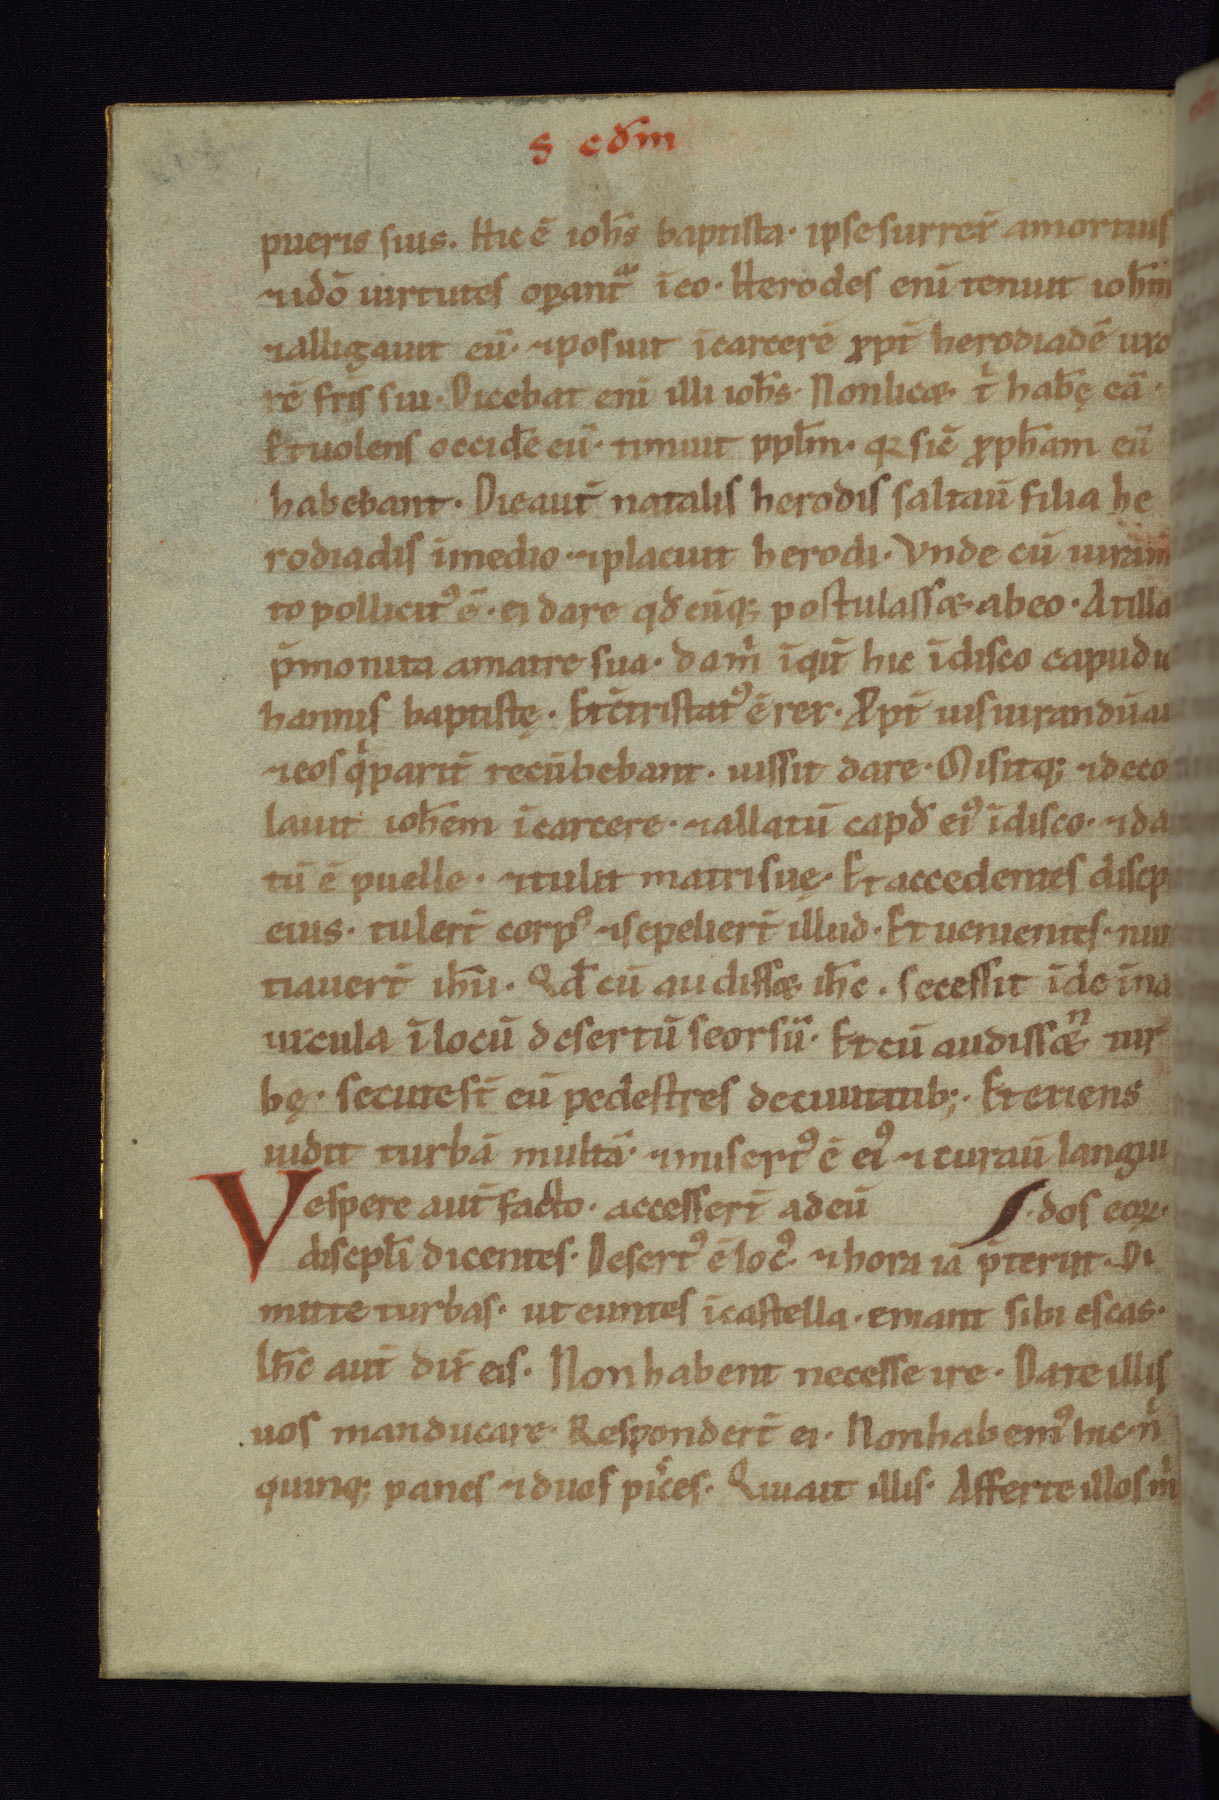 S cdm̄
pueris suis. Hic ē ioh̄s baptista. ipse surrex̄ a mortuis
⁊ idō uirtutes oꝑant᷑ ī eo. Herodes eni tenuit ioh̄m
⁊ alligauit eū. ⁊ posuit ī carcerē ꝓpt̄ herodiadē uxo
rē fr̄is sui. Dicebat eni illi ioh̄s. Non licæ t̄ habę eā.
Et uolens occidēe eū. timuit ppl̄m. qꝛ sic̄ ꝓph̄am eū
habebant. Die aut̄ natalis herodis saltau̅ filia he
rodiadis ī medio ⁊ placuit herodi. Vnde cū iuram̄
to pollicit᷒ ē. ei dare qd̄ cūq; postulassæ ab eo. At illa
p̄monita a matre sua. da m̄ īqit̄ hic ī disco capud io
hannis baptistę. Et c̄tristat᷒ ē rex. Ꝓpt̄ iusiurandū au
⁊ eos q̄ parit̄ recūbebant. iussit dare. Misitq; ⁊ deco
lauit ioh̄em ī carcere. ⁊ allatū capd̄ ei᷒ ī disco. ⁊ da
tū ē puelle. ⁊ tulit matri suę. Et accedentes discip
eius. tulert̄ corp᷒ ⁊ sepeliert̄ illud. Et uenientes. nun
tiauert̄ ih̄u. Qd̄ cū audissæ ih̄c. secessit īde ī na
uicula ī locū desertū seorsū. Et cū audissæn̄t tur
bę. secute st̄ eū pedestres de ciuitatib;. Et exiens
uidit turbā multā. ⁊ misert᷒ ē ei᷒ ⁊ curau̅ langui
Vespere aut̄ facto. accessert̄ ad eū dos eoꝝ.
discipl̄i dicentes. Desert᷒ ē loc᷒. ⁊ hora iā p̄teriit. Di
mitte turbas. ut euntes ī castella. emant sibi escas.
Ih̄c aut̄ dix̄ eis. Non habent necesse ire. Date illis
uos manducare. Respondert̄ ei. Non habem᷒ hic n̄
quinq; panes ⁊ duos pic̄es. Qui ait illis. Afferte illos m̄